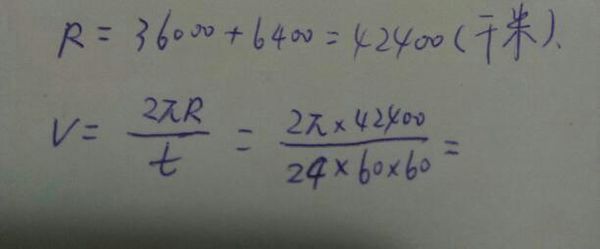 R = 36000 + 6400 = 42400 (千米).
V = 2πR / t = 2π × 42400 / 24 × 60 × 60 =